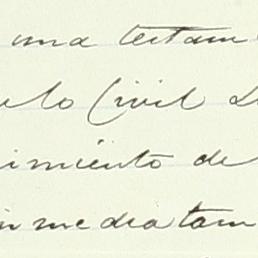 una testam
elo Civil d
imiento de
inmediatam